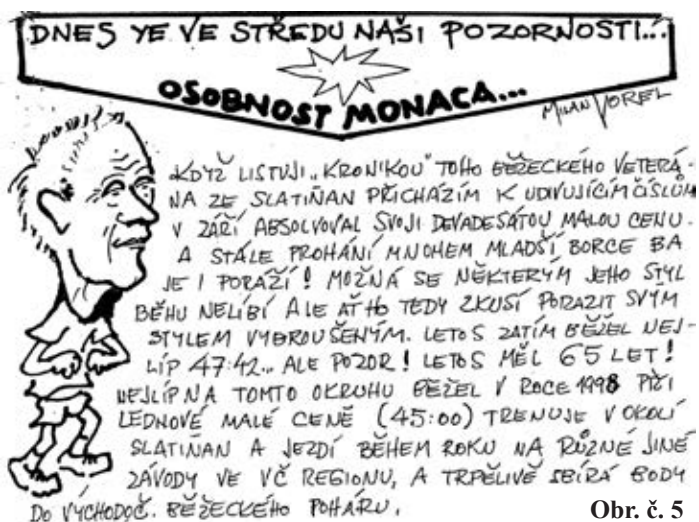 DNES YE VE STŘEDU NAŠI POZORNOSTI...
OSOBNOST MONACA...
MILAN VOREL
KDYŽ LISTUJI „KRONIKOU" TOHO BĚŽECKÉHO VETERÁ-
NA ZE SLATIŇAN PŘICHÁZÍM K UDIVUJÍCÍM ČÍSLŮM
V ZÁŘÍ ABSOLVOVAL SVOJI DEVADESÁTOU MALOU CENU.
A STÁLE PROHÁNÍ MNOHEM MLADŠÍ BORCE BA
JE I PORAŽÍ! MOŽNÁ SE NĚKTERÝM JEHO STYL
BĚHU NELÍBÍ ALE AŤ HO TEDY ZKUSÍ PORAZIT SVÝM
STYLEM VYBROUŠENÝM. LETOS ZATÍM BĚŽEL NEJ-
LÍP 47:42... ALE POZOR! LETOS MĚL 65 LET!
NEJLÍP NA TOMTO OKRUHU BĚŽEL V ROCE 1998 PŘI
LEDNOVÉ MALÉ CENĚ (45:00) TRENUJE V OKOLÍ
SLATIŇAN A JEZDÍ BĚHEM ROKU NA RŮZNÉ JINÉ
ZÁVODY VE VČ REGIONU, A TRPĚLIVĚ SBÍRÁ BODY
DO VÝCHODOČ. BĚŽECKÉHO POHÁRU.
Obr. č. 5